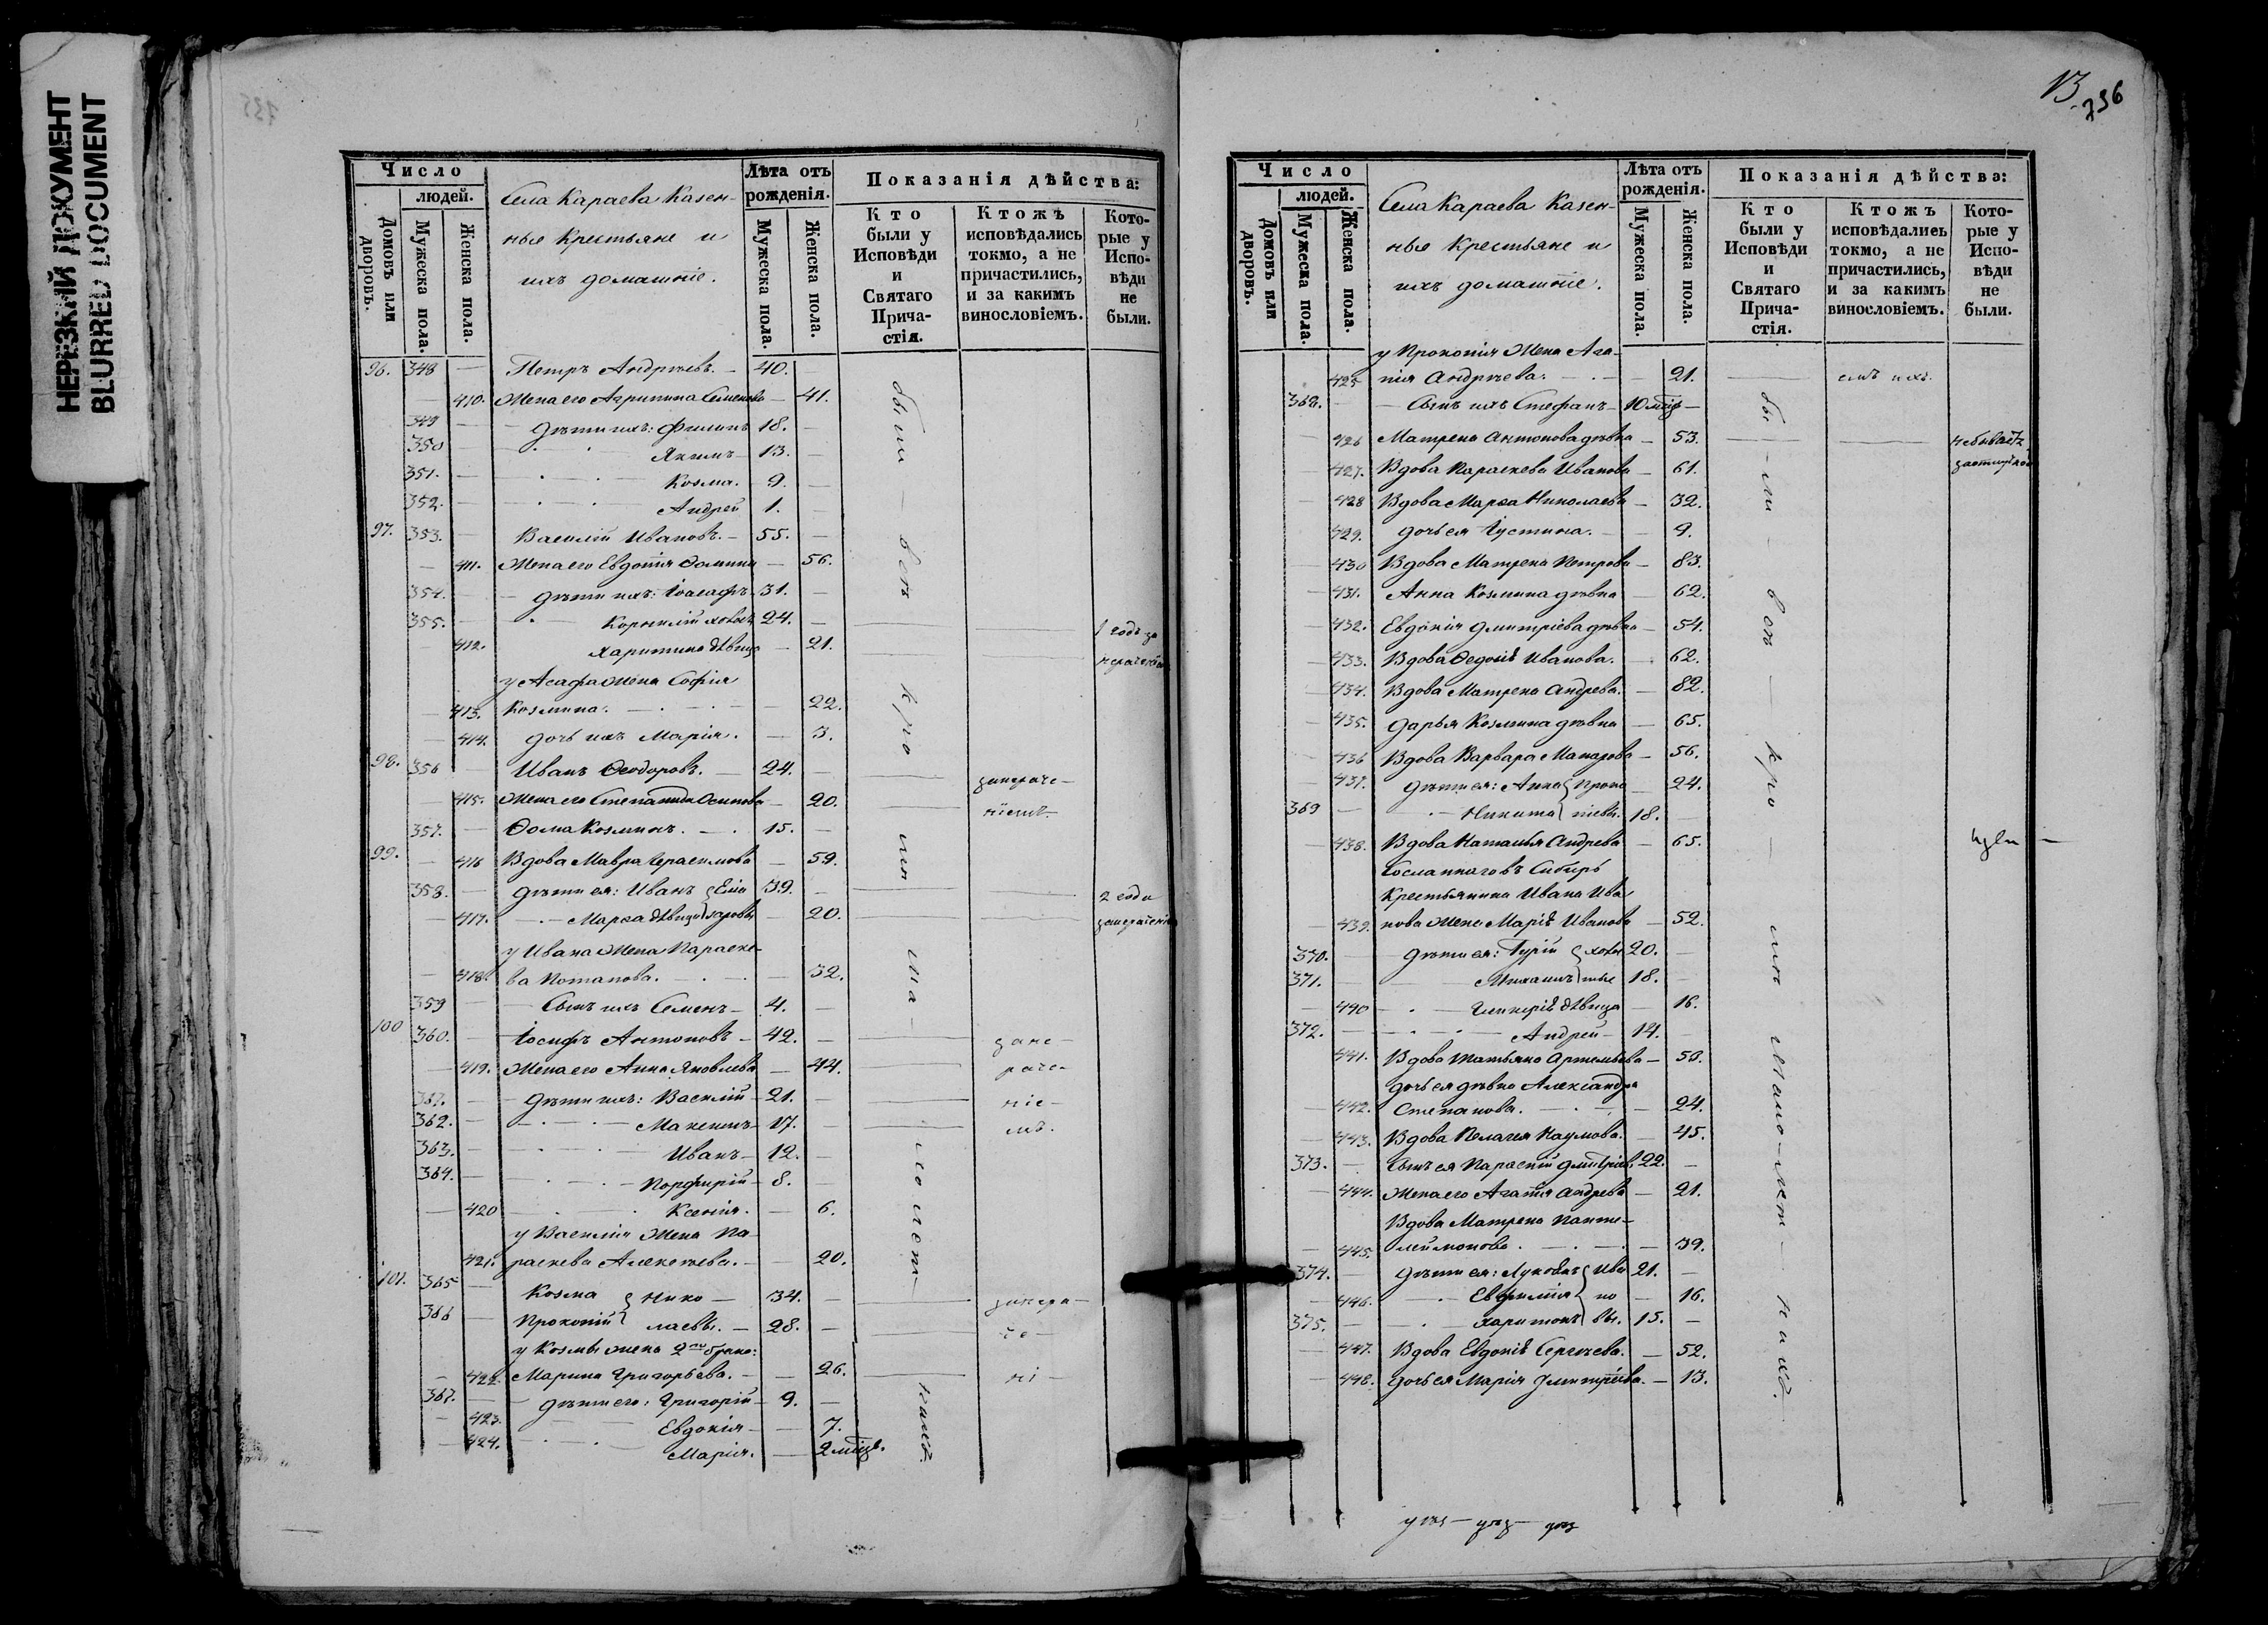 НЕРЕЗКИЙ ДОКУМЕНТ
BLURRED DOCUMENT
Число
людей.
Домовъ или дворовъ.
Мужеска пола.
Женска пола.
Села Караева Казен-
ные крестьяне и
ихъ домашніе.
Лѣта отъ рожденія.
Мужеска пола.
Женска пола.
Показанія дѣйства:
Кто были у Исповѣди и Святаго Прича-стія.
Ктожъ исповѣдались токмо, а не причастились, и за какимъ винословіемъ.
Кото-рые у Испо-вѣди не были.
96. 348 — Петръ Андреевъ. — 40.
— 410. Жена его Агрипина Семенова — 41.
349 — дѣти ихъ: Филипъ 18. —
350 — Якимъ — 13. —
351. — Козма. — 9. —
352. — Андрей 1. —
97. 353. — Василій Ивановъ. — 55. —
— 411. Жена его Евдокія Фомина — 56.
354. — дѣти ихъ: Іоасафъ 31. —
355. — Корнилій холостъ 24. —
— 412. Харитина дѣвица — 21. 1 годъ за
у Асафа жена Софія
— 413. Козмина. — 22.
— 414. дочь ихъ Марія. — 3.
98. 356 — Иванъ Ѳеодоровъ. — 24. — занераче-
— 415. Жена его Степанида Осипова — 20. ніемъ
357. — Ѳома Козминъ. — 15. —
99. — 416 Вдова Мавра Герасимова — 59.
358. — дѣти ея: Иванъ 39. — 2 года
— 417. Марѳа дѣвица — 20.
у Ивана жена Параске-
— 418. ва Потапова. — 32.
359 — Сынъ ихъ Семенъ — 4. —
100 360. — Іосифъ Антоновъ — 42. — зане-
— 419. Жена его Анна Яковлева — 44. раче-
361. — дѣти ихъ: Василій — 21. — ніе-
362. — Максимъ — 17. — мъ.
363. — Иванъ — 12. —
364. — Порфирій — 8. —
— 420 Ксенія. — 6.
у Василія жена Па-
421. раскева Алексѣева. — 20.
101. 365 — Козма } Нико — 34. — занера-
366 — Прокопій } лаевы. — 28. — че-
у Козмы жена 2го брака:
— 422. Марина Григорьева. — 26. ні-
367. — дѣти его: Григорій — 9. —
— 423. Евдокія — 7.
— 424. Марія. — 2 мѣсц.
были
всѣ
кро
мѣ
ма
лолѣт
нихъ.
13
736
Число
людей.
Домовъ или дворовъ.
Мужеска пола.
Женска пола.
Села Караева Казен-
ные крестьяне и
ихъ домашніе.
Лѣта отъ рожденія.
Мужеска пола.
Женска пола.
Показанія дѣйства:
Кто были у Исповѣди и Святаго Прича-стія.
Ктожъ исповѣдались токмо, а не причастились, и за какимъ винословіемъ.
Кото-рые у Испо-вѣди не были.
у Прокопія жена Ага-
425 пія Андреева. — 21.
368. — Сынъ ихъ Стефанъ — 10 мѣсц —
— 426 Матрена Антонова дѣвка — 53.
— 427. Вдова Параскева Иванова — 61.
— 428 Вдова Марѳа Николаева — 32.
— 429. дочь ея Іустина. — 9.
— 430 Вдова Матрена Петрова — 83.
— 431. Анна Козмина дѣвка — 62.
— 432. Евдокія Дмитріева дѣвка — 54.
— 433. Вдова Ѳедосія Иванова. — 62.
— 434. Вдова Матрена Андреева. — 82.
— 435. Дарья Козмина дѣвка — 65.
— 436 Вдова Варвара Макарова — 56.
— 437. дѣти ея: Анна } Проко — 24.
369 — Никита } піевы. 18. —
— 438. Вдова Наталья Андреева — 65.
Сосланнаго въ Сибирь
Крестьянина Ивана Ива
— 439. нова жена Марія Иванова — 52.
370. — дѣти ея: Гурій } холос 20. —
371. — Михаилъ } тые 18. —
— 440 Гликерія дѣвица — 16.
372. — Андрей — 14. —
— 441. Вдова Татьяна Артемьева — 50.
дочь ея дѣвка Александра
— 442. Степанова. — 24.
— 443. Вдова Пелагея Наумова. — 45.
373. — Сынъ ея Дмитріев. 22. —
— 444. Жена его Агафія Андреева — 21.
Вдова Матрена Панте-
— 445. леймонова. — 39.
374. — дѣти ея: } Ива 21. —
— 446. Евфимія } но — 16.
375. — Харитонъ } вы. 15. —
— 447. Вдова Евдокія Сергѣева. — 52.
— 448. дочь ея Марія Дмитріева. — 13.
бы
ли
всѣ
кро
мѣ
мало-лѣт
нихъ.